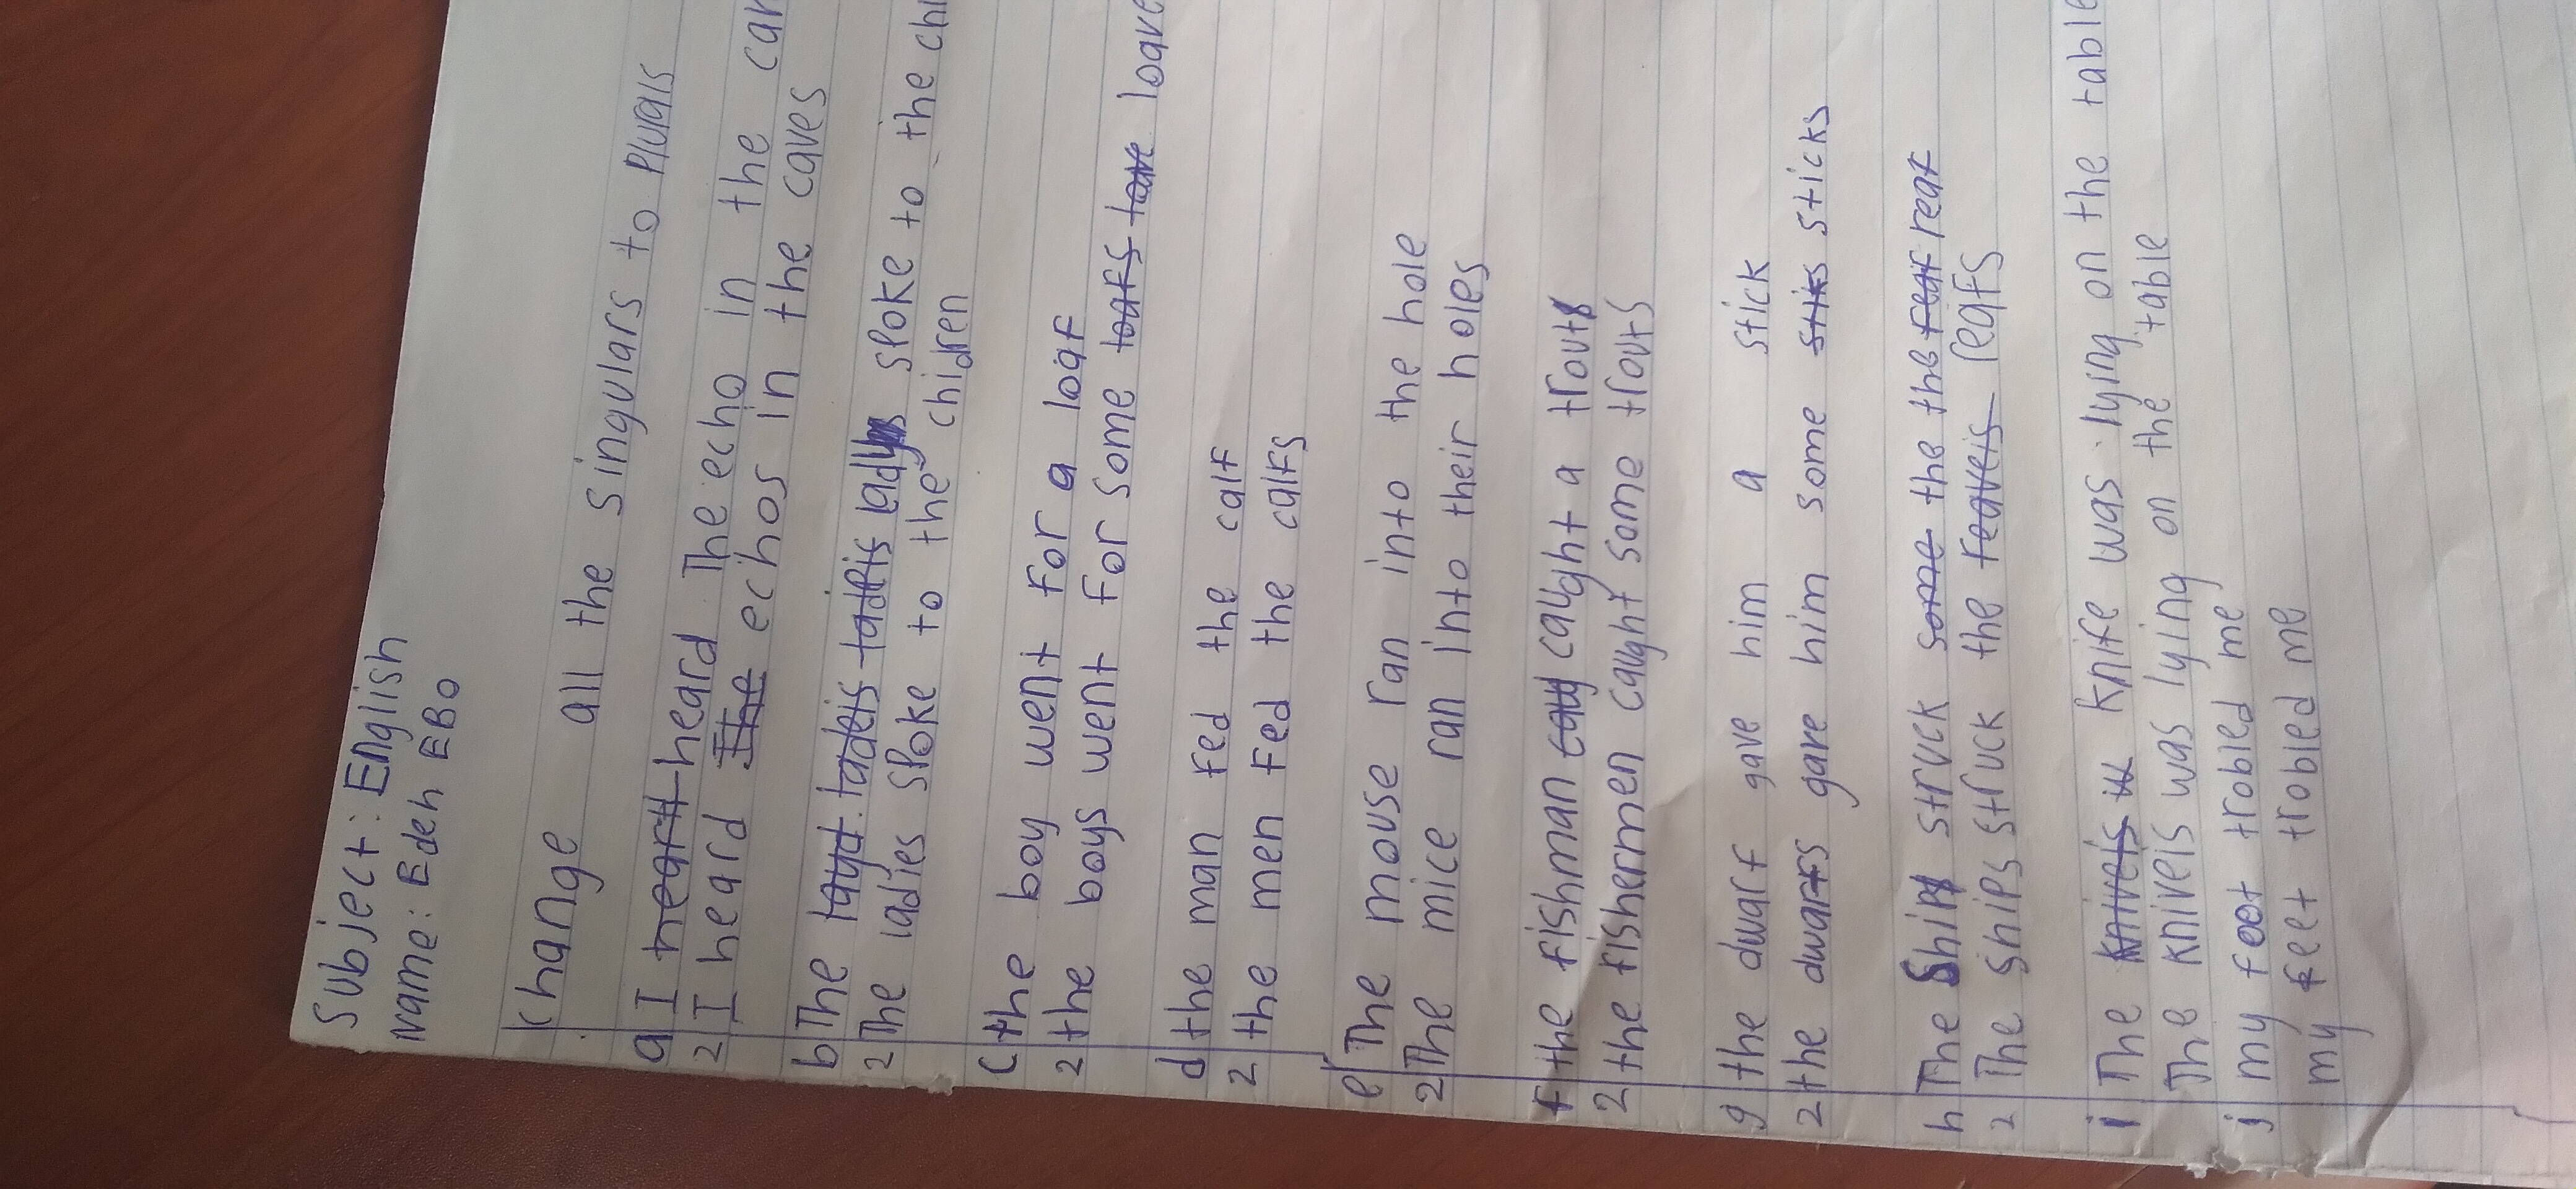 Subject: English
Name: Edeh EBo
Change all the singulars to Plurals
a I heard The echo in the
2 I heard echos in the caves
b The lady spoke to the
2 The ladies spoke to the children
c the boy went for a loaf
2 the boys went for some loave
d the man fed the calf
2 the men fed the calfs
e The mouse ran into the hole
2 The mice ran into their holes
f the fishman caught a trout
2 the fishermen caught some trouts
g the dwarf gave him a stick
2 the dwarfs gave him some sticks
h The Ship struck the the reaf
2 The ships struck the leafs
i The knife was lying on the table
The kniveis was lying on the table
j my foot trobled me
my feet trobled me